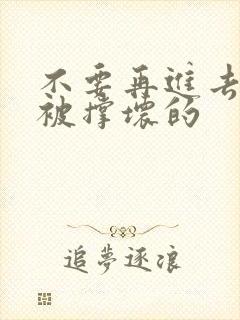 不要再进去
被撑坏的
追梦逐浪